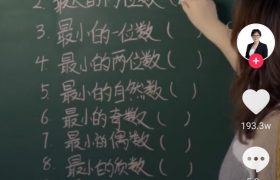 2. 最大的两位数(
3. 最小的一位数( )
4. 最小的两位数( )
5. 最小的自然数( )
6. 最小的奇数( )
7. 最小的偶数( )
8. 最小的质数( )
193.3w